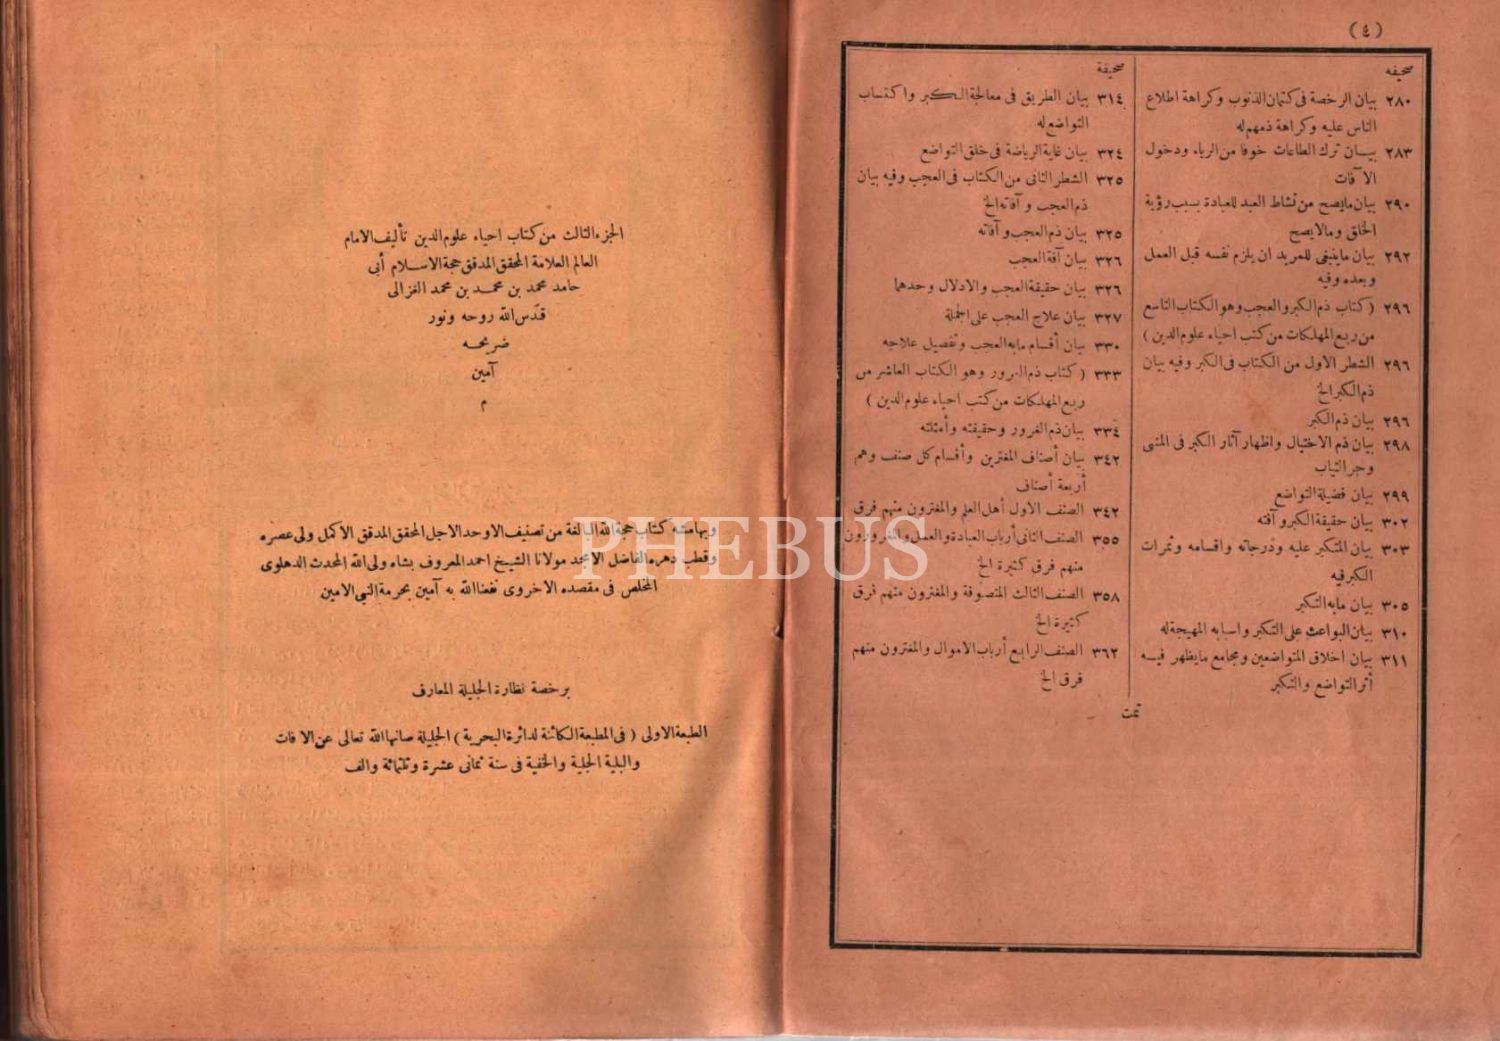 (٤)
صحيفه
٢٨٠ بيان الرخصة فى كتمان الذنوب وكراهة اطلاع
الناس عليه وكراهة ذمهم له
٢٨٣ بيان ترك الطاعات خوفا من الرياء ودخول
الآفات
٢٩٠ بيان مايصح من نشاط العبد للعبادة بسبب رؤية
الخلق ومالايصح
٢٩٢ بيان ماينبغى للمريد ان يلزم نفسه قبل العمل
وبعده وفيه
٢٩٦ (كتاب ذم الكبر والعجب وهو الكتاب التاسع
من ربع المهلكات من كتب احياء علوم الدين)
٢٩٦ الشطر الاول من الكتاب فى الكبر وفيه بيان
ذم الكبر الخ
٢٩٦ بيان ذم الكبر
٢٩٨ بيان ذم الاختيال واظهار آثار الكبر فى المشى
وجر الثياب
٢٩٩ بيان فضيلة التواضع
٣٠٢ بيان حقيقة الكبر وآفته
٣٠٣ بيان المتكبر عليه ودرجاته واقسامه وثمرات
الكبر فيه
٣٠٥ بيان مابه التكبر
٣١٠ بيان البواعث على التكبر واسبابه المهيجة له
٣١١ بيان اخلاق المتواضعين ومجامع مايظهر فيه
أثر التواضع والتكبر
صحيفة
٣١٤ بيان الطريق فى معالجة الكبر واكتساب
التواضع له
٣٢٤ بيان غاية الرياضة فى خلق التواضع
٣٢٥ الشطر الثانى من الكتاب فى العجب وفيه بيان
ذم العجب وآفاته الخ
٣٢٥ بيان ذم العجب وآفاته
٣٢٦ بيان آفة العجب
٣٢٦ بيان حقيقة العجب والادلال وحدهما
٣٢٧ بيان علاج العجب على الجملة
٣٣٠ بيان أقسام مابه العجب وتفصيل علاجه
٣٣٣ (كتاب ذم الغرور وهو الكتاب العاشر من
ربع المهلكات من كتب احياء علوم الدين)
٣٣٤ بيان ذم الغرور وحقيقته وأمثلته
٣٤٢ بيان أصناف المغترين وأقسام كل صنف وهم
أربعة أصناف
٣٤٢ الصنف الاول أهل العلم والمغترون منهم فرق
٣٥٥ الصنف الثانى أرباب العبادة والعمل والمغرورون
منهم فرق كثيرة الخ
٣٥٨ الصنف الثالث المتصوفة والمغترون منهم فرق
كثيرة الخ
٣٦٢ الصنف الرابع أرباب الاموال والمغترون منهم
فرق الخ
تمت
الجزء الثالث من كتاب احياء علوم الدين تأليف الامام
العالم العلامة المحقق المدقق حجة الاسلام أبى
حامد محمد بن محمد بن محمد الغزالى
قدّس الله روحه ونور
ضريحه
آمين
م
وبهامشه كتاب حجة الله البالغة من تصنيف الاوحد الاجل المحقق المدقق الأكمل ولى عصره
وقطب دهره الفاضل الامجد مولانا الشيخ احمد المعروف بشاه ولى الله المحدث الدهلوى
المخلص فى مقصده الاخروى نفعنا الله به آمين بحرمة النبى الامين
برخصة نظارة الجليلة المعارف
الطبعة الاولى (فى المطبعة الكائنة لدائرة البحرية) الجليلة صانها الله تعالى عن الآفات
والبلية الجلية والخفية فى سنة ثمانى عشرة وثلثمائة والف
PHEBUS